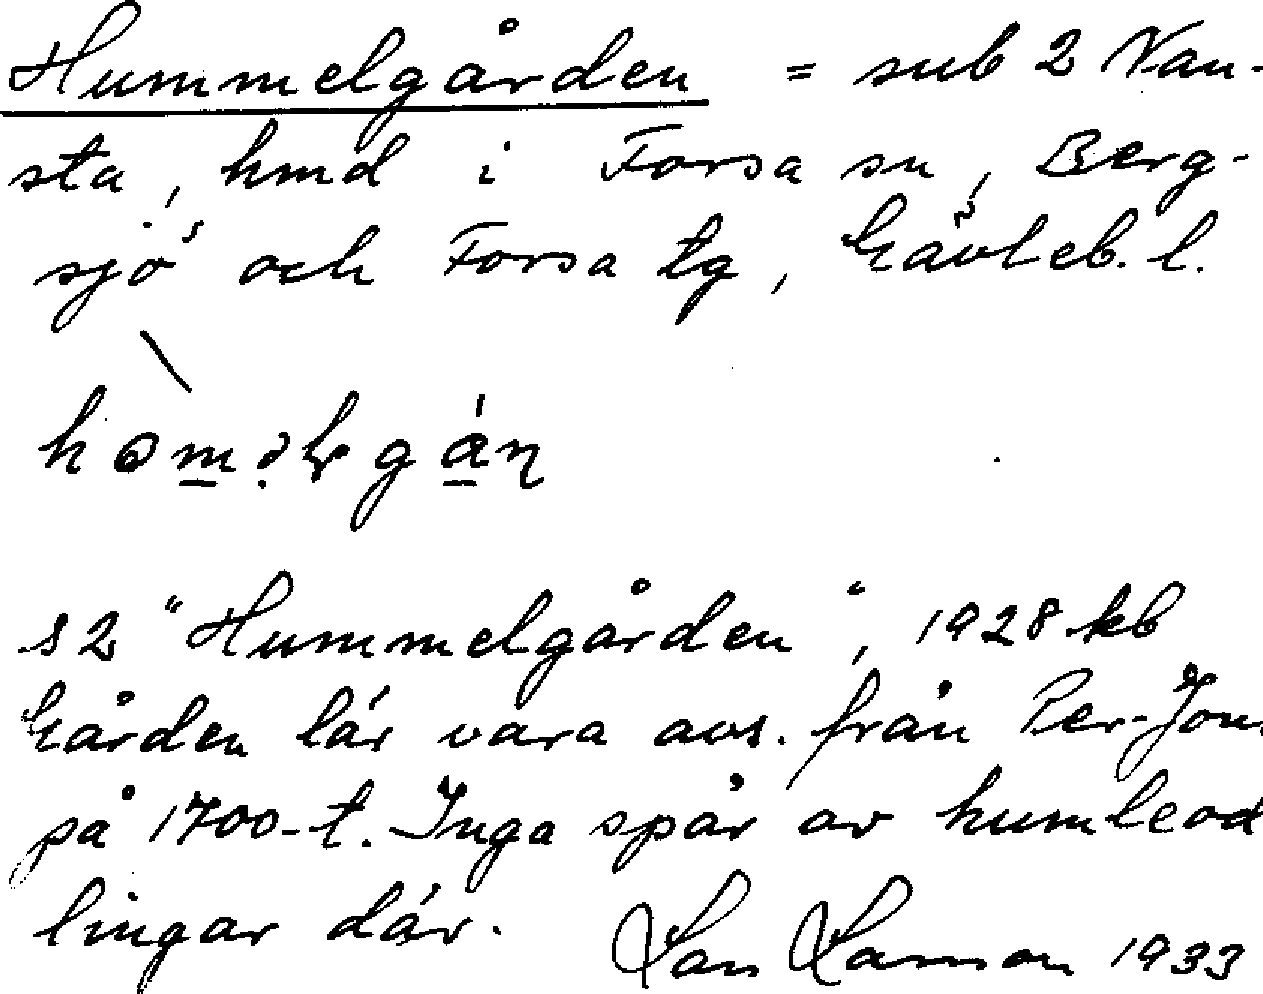 Hummelgården = sub 2 Van-
sta, hmd i Forsa sn, Berg-
sjö och Forsa tg, Gävleb. l.
s2 "Hummelgården", 1928 kb
Gården lär vara avs. från Per-Jon.
på 1700-t. Inga spår av humleod
lingar där. Lars Larsson 1933